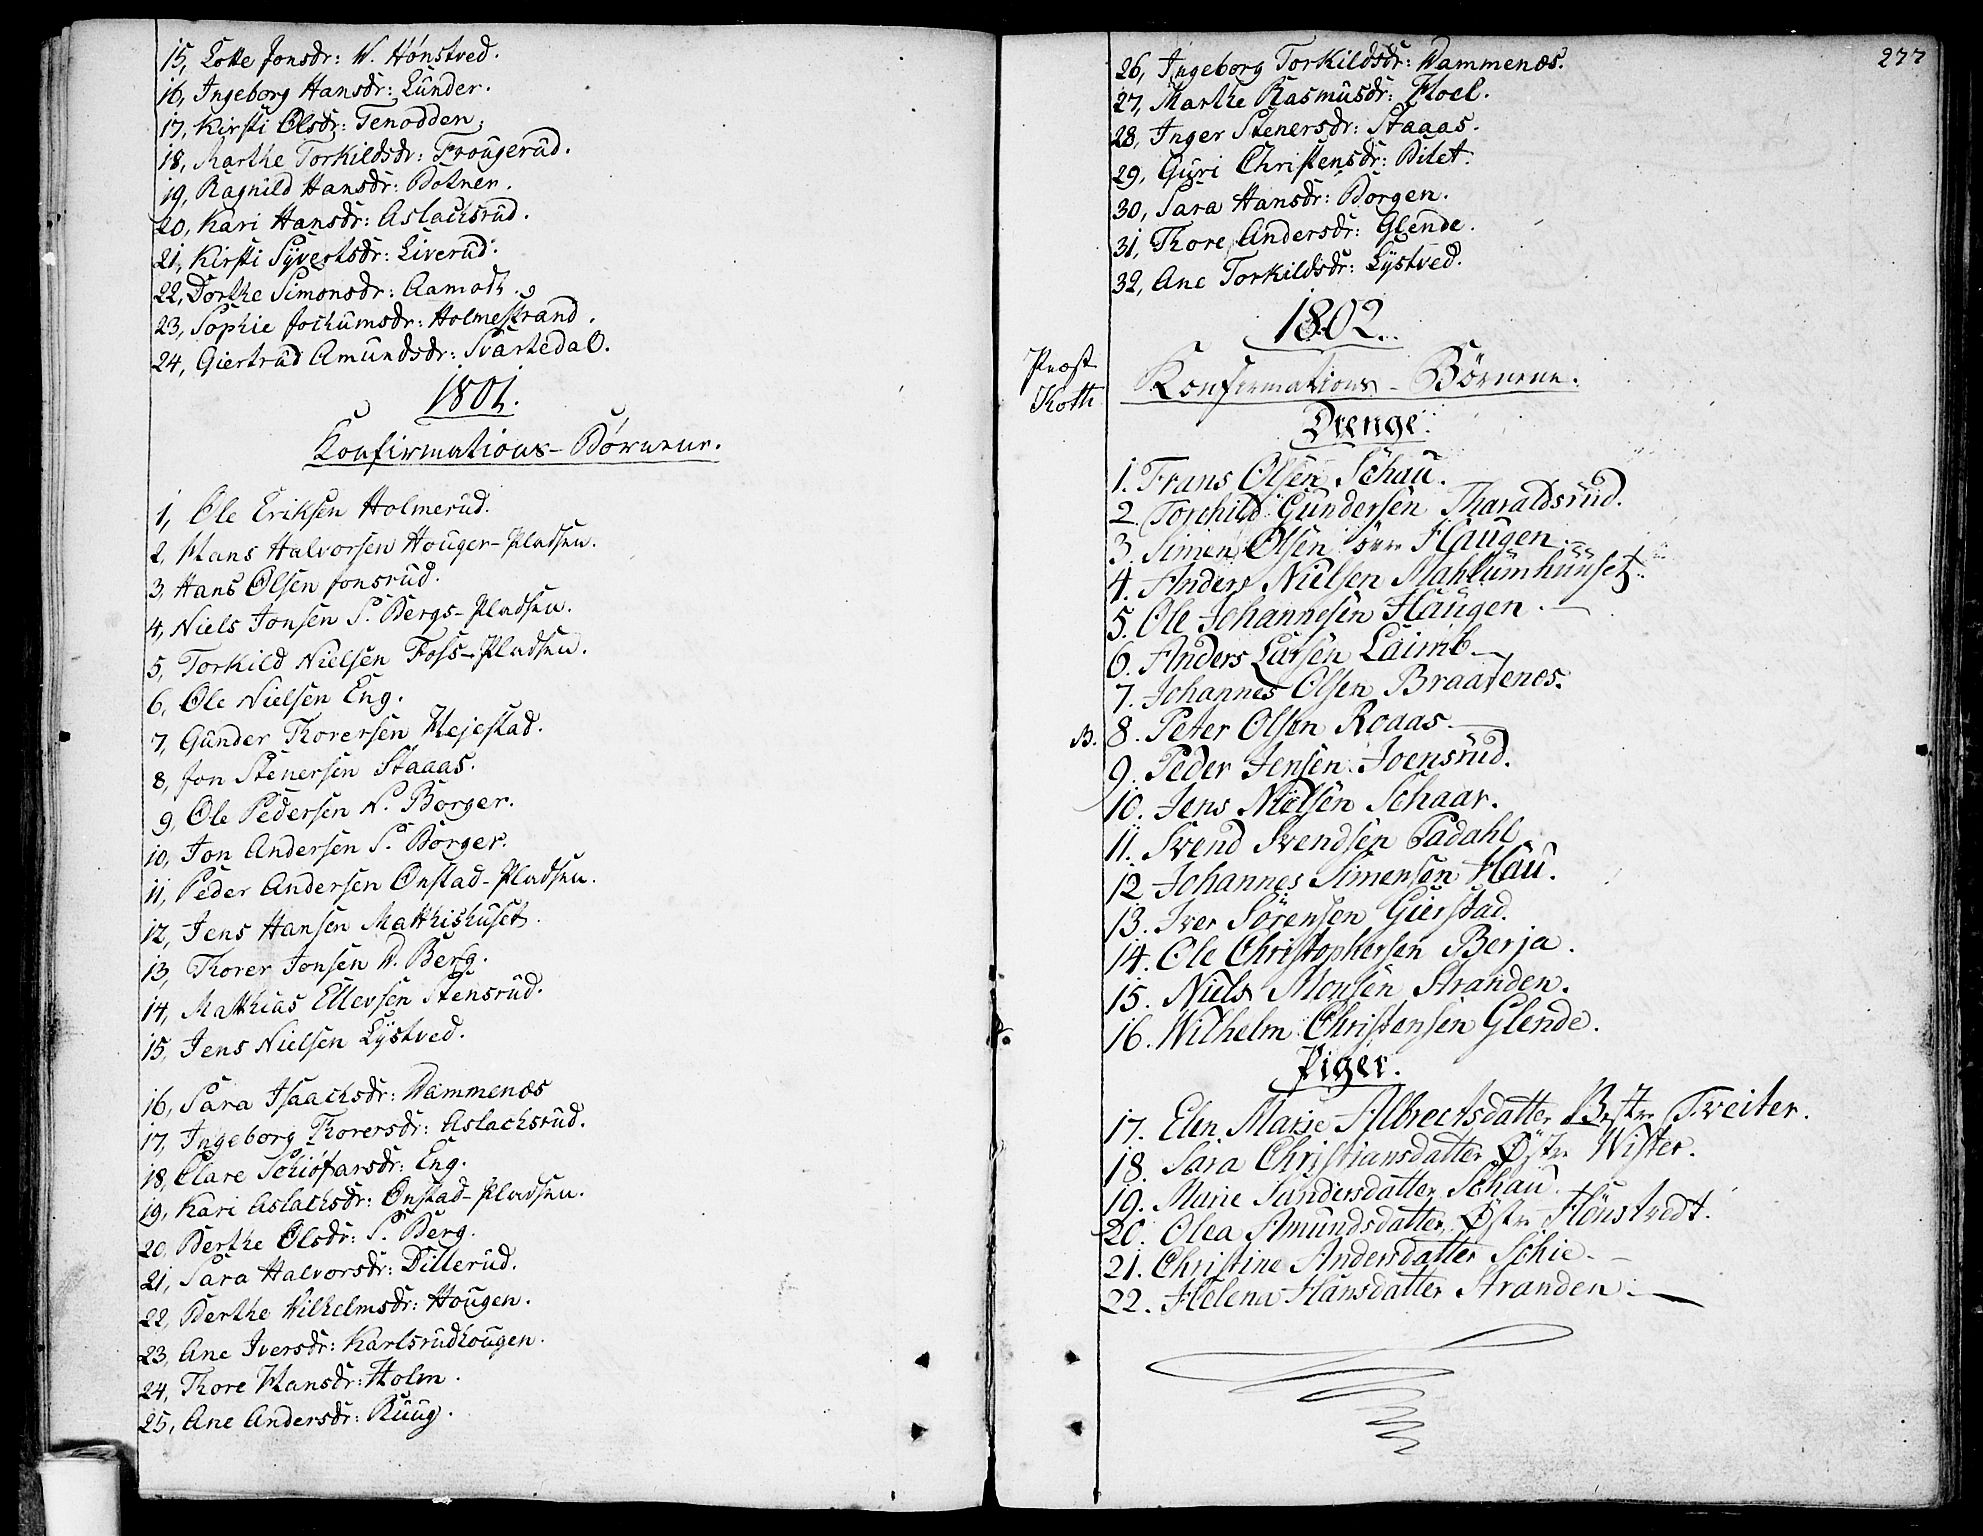 15, Lotte Jonsdr: V. Hönstved.
16, Ingeborg Hansdr: Lunder.
17, Kirsti Olsdr: Tenodden.
18, Marthe Torkildsdr: Frougerud.
19, Ragnild Hansdr: Botner.
20, Kari Hansdr: Aslachsrud.
21, Kirsti Syvertsdr: Liverud.
22, Dorthe Simonsdr: Aamodt.
23, Sophie Jochumsdr: Holmestrand.
24, Giertrud Amundsdr: Svartedal.
1801.
Konfirmations-Børnene.
1, Ole Eriksen Holmerud.
2, Hans Halvorsen Houger-Pladsen.
3, Hans Olsen Jonsrud.
4, Niels Jonsen S. Bergs-Pladsen.
5, Torkild Nielsen Foss-Pladsen.
6, Ole Nielsen Eng.
7, Gunder Thorersen Hejestad.
8, Jon Stenersen Staaas.
9, Ole Pedersen N. Borger.
10, Jon Andersen S. Borger.
11, Peder Andersen Onstad-Pladsen.
12, Jens Hansen Matthishuset.
13, Thorer Jonsen V. Berg.
14, Matthias Ellevsen Stensrud.
15, Jens Nielsen Lystved.
16, Sara Isaachsdr: Vammenæs
17, Ingeborg Thorersdr: Aslachsrud.
18, Clare Schiöfarsdr: Eng.
19, Kari Aslachsdr: Onstad-Pladsen.
20, Berthe Olsdr: S. Berg.
21, Sara Halvorsdr: Dillerud.
22, Berthe Vilhelmsdr: Hougen.
23, Ane Iversdr: Karlsrudhougen.
24, Thore Hansdr: Holm.
25, Ane Andersdr: Ruug.
277
26, Ingeborg Torkildsdr: Vammenæs.
27, Marthe Rasmusdr: Hoel.
28, Inger Stenersdr: Staaas.
29, Guri Christensdr: Bilet.
30, Sara Hansdr: Borgen.
31, Thore Andersdr: Glende.
32, Ane Torkildsdr: Lystved.
1802.
Præst
Koth
Konfirmations-Börnene.
Drenge.
1. Frans Olsen Schau.
2. Torchild Gundersen Tharaldsrud.
3. Simen Olsen Haugen
4. Anders Nielsen Mahlumhuuset.
5. Ole Johannesen Haugen.
6. Anders Larsen Laimb
7. Johannes Olsen Braatenes.
8. Peter Olsen Roaas
9. Peder Jensen Joensrud.
10. Jens Nielsen Schaar.
11. Svend Svendsen Fadahl
12. Johannes Simensen Hau.
13. Iver Sörensen Gierstad.
14. Ole Christophersen Berja.
15. Niels Monsen Stranden.
16. Wilhelm Christensen Glende.
Piger.
17. Elen Marie Albrectsdatter Tveiter.
18. Sara Christiansdatter Østr Wister.
19. Marie Sandersdatter Schau.
20. Olea Amundsdatter Østr Hönstvedt.
21. Christine Andersdatter Schie
22. Helena Hansdatter Stranden.